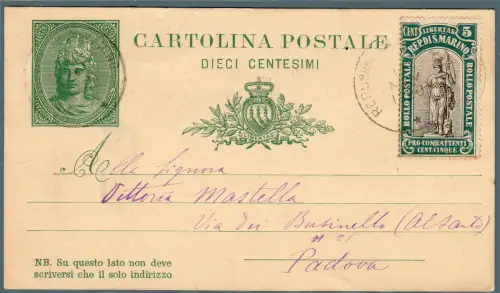 CARTOLINA POSTALE
DIECI CENTESIMI
CENT LIBERTAS 5
REP. DI S. MARINO
BOLLO POSTALE
BOLLO POSTALE
PRO COMBATTENTI
CENT. CINQUE
LIBERTAS
Alla Signora
Vittoria Mastella
Via dei Businello (al Santo)
Padova
NB. Su questo lato non deve
scriversi che il solo indirizzo